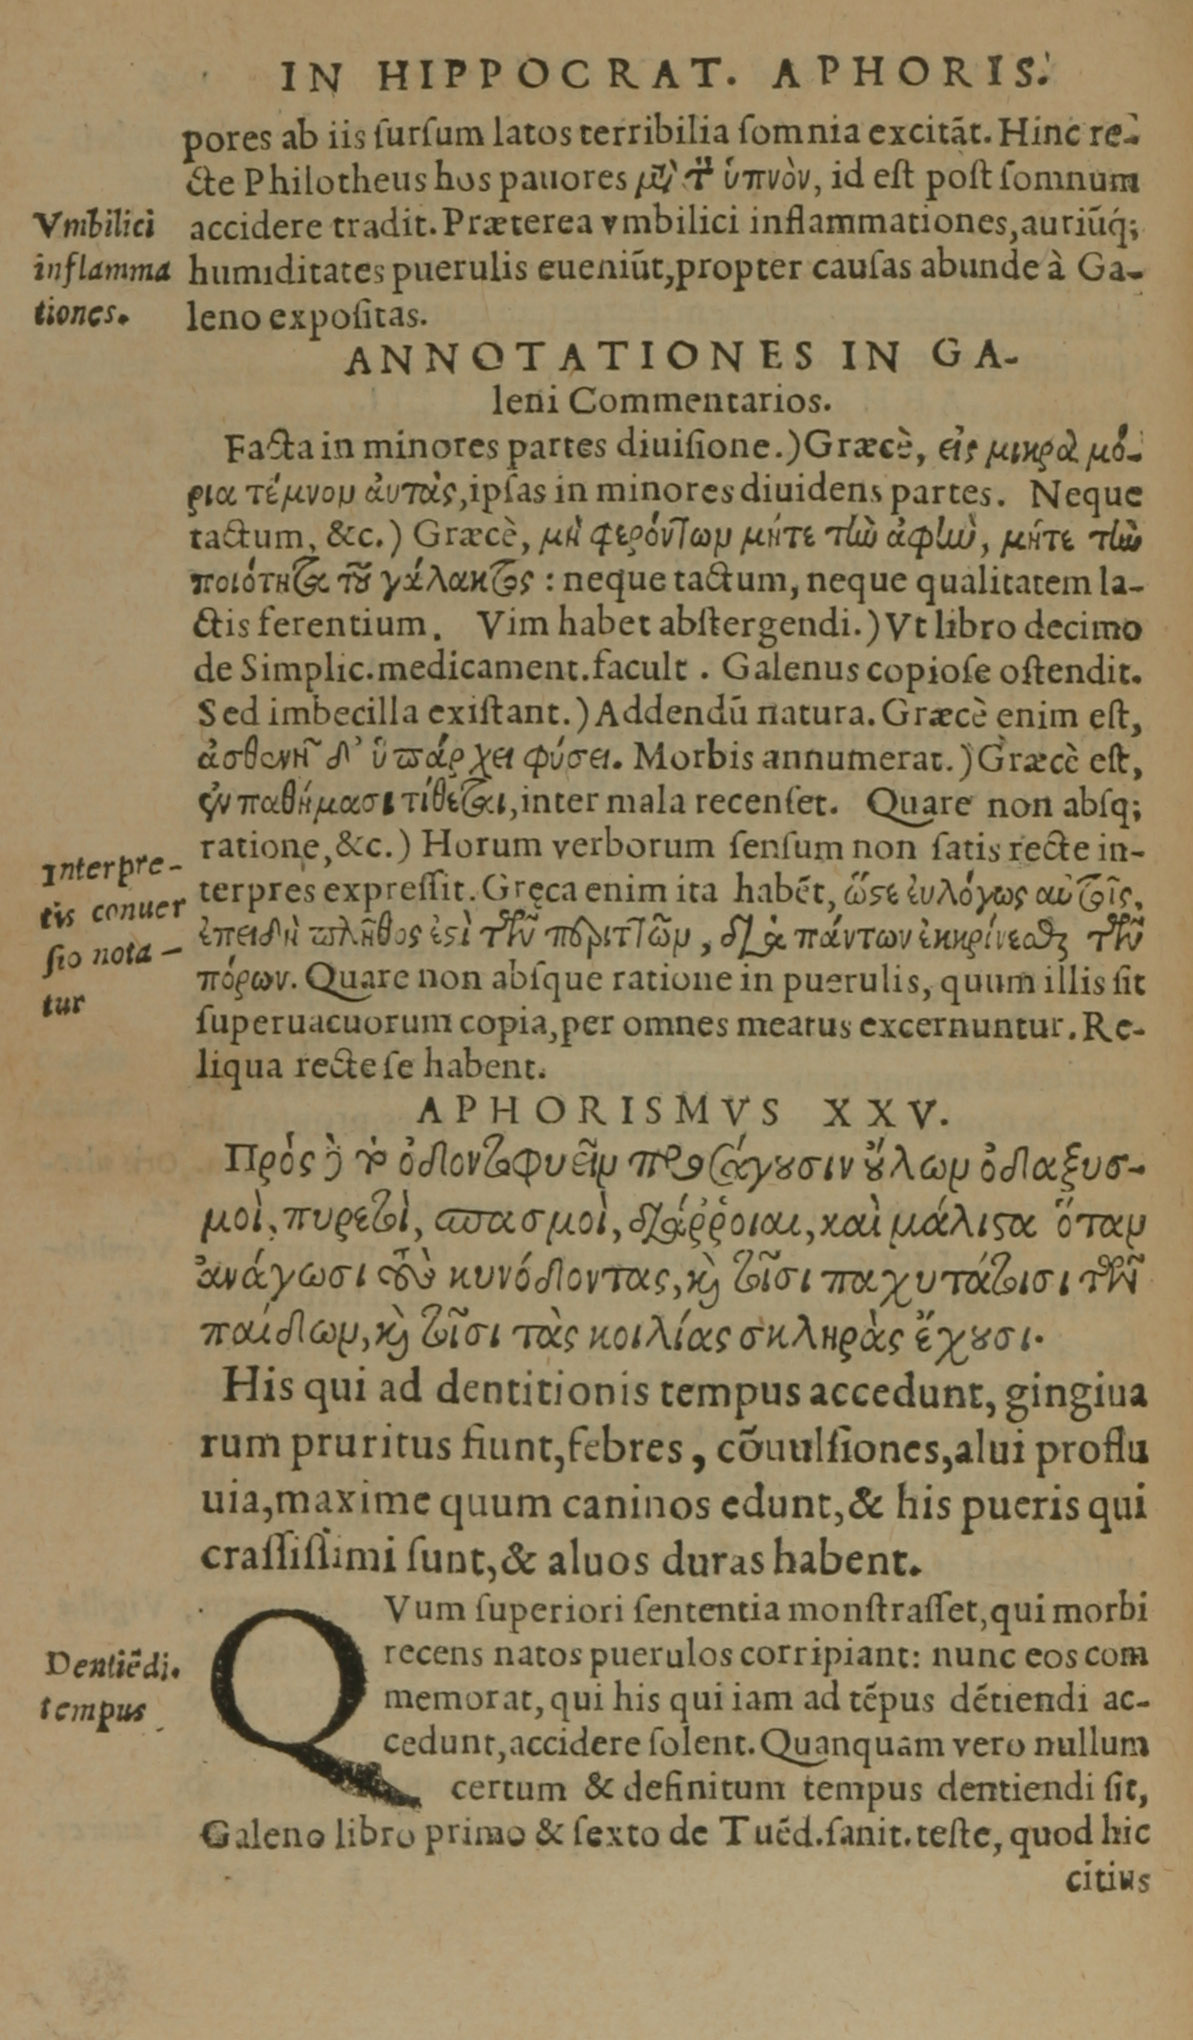 IN HIPPOCRAT. APHORIS.
pores ab iis ſurſum latos terribilia ſomnia excitāt. Hinc re-
cte Philotheus hos pauores μετὰ τὸν ὑπνὸν, id eſt poſt ſomnum
Vmbilici
inflamma
tiones.
accidere tradit. Præterea vmbilici inflammationes, auriūq́;
humiditates puerulis eueniūt, propter cauſas abunde à Ga-
leno expoſitas.
ANNOTATIONES IN GA-
leni Commentarios.
Facta in minores partes diuiſione.) Græcè, εἰς μικρὰ μό-
ρια τέμνομ ἀυτὰς, ipſas in minores diuidens partes. Neque
tactum, &c.) Græcè, μὴ φερόντωμ μήτε τὼ ἀφὼ, μήτε τὼ
ποιότητα τοῦ γάλακτος : neque tactum, neque qualitatem la-
ctis ferentium. Vim habet abſtergendi.) Vt libro decimo
de Simplic. medicament. facult . Galenus copioſe oſtendit.
Sed imbecilla exiſtant.) Addendū natura. Græcè enim eſt,
ἀσθενῆ δ' ὑπάρχει φύσει. Morbis annumerat.) Græcè eſt,
ἐν παθήμασι τίθεται, inter mala recenſet. Quare non abſq;
ratione, &c.) Horum verborum ſenſum non ſatis recte in-
Interpre-
tis conuer
ſio nota-
tur
terpres expreſſit. Gręca enim ita habēt, ὥϛε ἐυλόγως αὐτοῖς,
ἐπειδὴ πλῆθος ἐϛὶ τῶν περιττῶμ, διὰ πάντων ἐκκρίνεσθαι τῶν
πόρων. Quare non abſque ratione in puerulis, quum illis ſit
ſuperuacuorum copia, per omnes meatus excernuntur. Re-
liqua recte ſe habent.
APHORISMVS XXV.
Πρός δὲ τὸ ὀδοντοφυεῖμ προσάγουσιν οὔλωμ ὀδαξυσ-
μοὶ, πυρετοὶ, σπασμοὶ, διάῤῥοιαι, καὶ μάλιϛα ὅταμ
ἀνάγωσι τοὺς κυνόδοντας, καὶ τοῖσι παχυτάτοισι τῶν
παίδωμ, καὶ τοῖσι τὰς κοιλίας σκληρὰς ἔχουσι.
His qui ad dentitionis tempus accedunt, gingiua
rum pruritus fiunt, febres, cōuulſiones, alui proflu
uia, maxime quum caninos edunt, & his pueris qui
craſſiſſimi ſunt, & aluos duras habent.
QVum ſuperiori ſententia monſtraſſet, qui morbi
Dentiēdi.
tempus
recens natos puerulos corripiant: nunc eos com
memorat, qui his qui iam ad tēpus dētiendi ac-
cedunt, accidere ſolent. Quanquam vero nullum
certum & definitum tempus dentiendi ſit,
Galeno libro primo & ſexto de Tuēd. ſanit. teſte, quod hic
citius